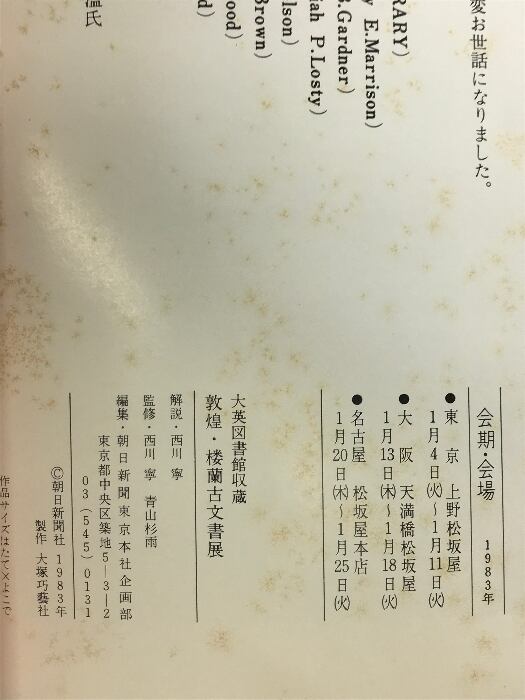 変お世話になりました。
RARY)
y E.Marrison)
B.Gardner)
iah P.Losty)
lson)
Brown)
ood)
d)
温氏
会期・会場 1983年
●東 京 上野松坂屋
1月4日(火)～1月11日(火)
●大 阪 天満橋松坂屋
1月13日(木)～1月18日(火)
●名古屋 松坂屋本店
1月20日(木)～1月25日(火)
大英図書館収蔵
敦煌・楼蘭古文書展
解説・西川 寧
監修・西川 寧 青山杉雨
編集・朝日新聞東京本社企画部
東京都中央区築地5―3―2
03(545)0131
©朝日新聞社 1983年
製作 大塚巧藝社
作品サイズはたて×よこで